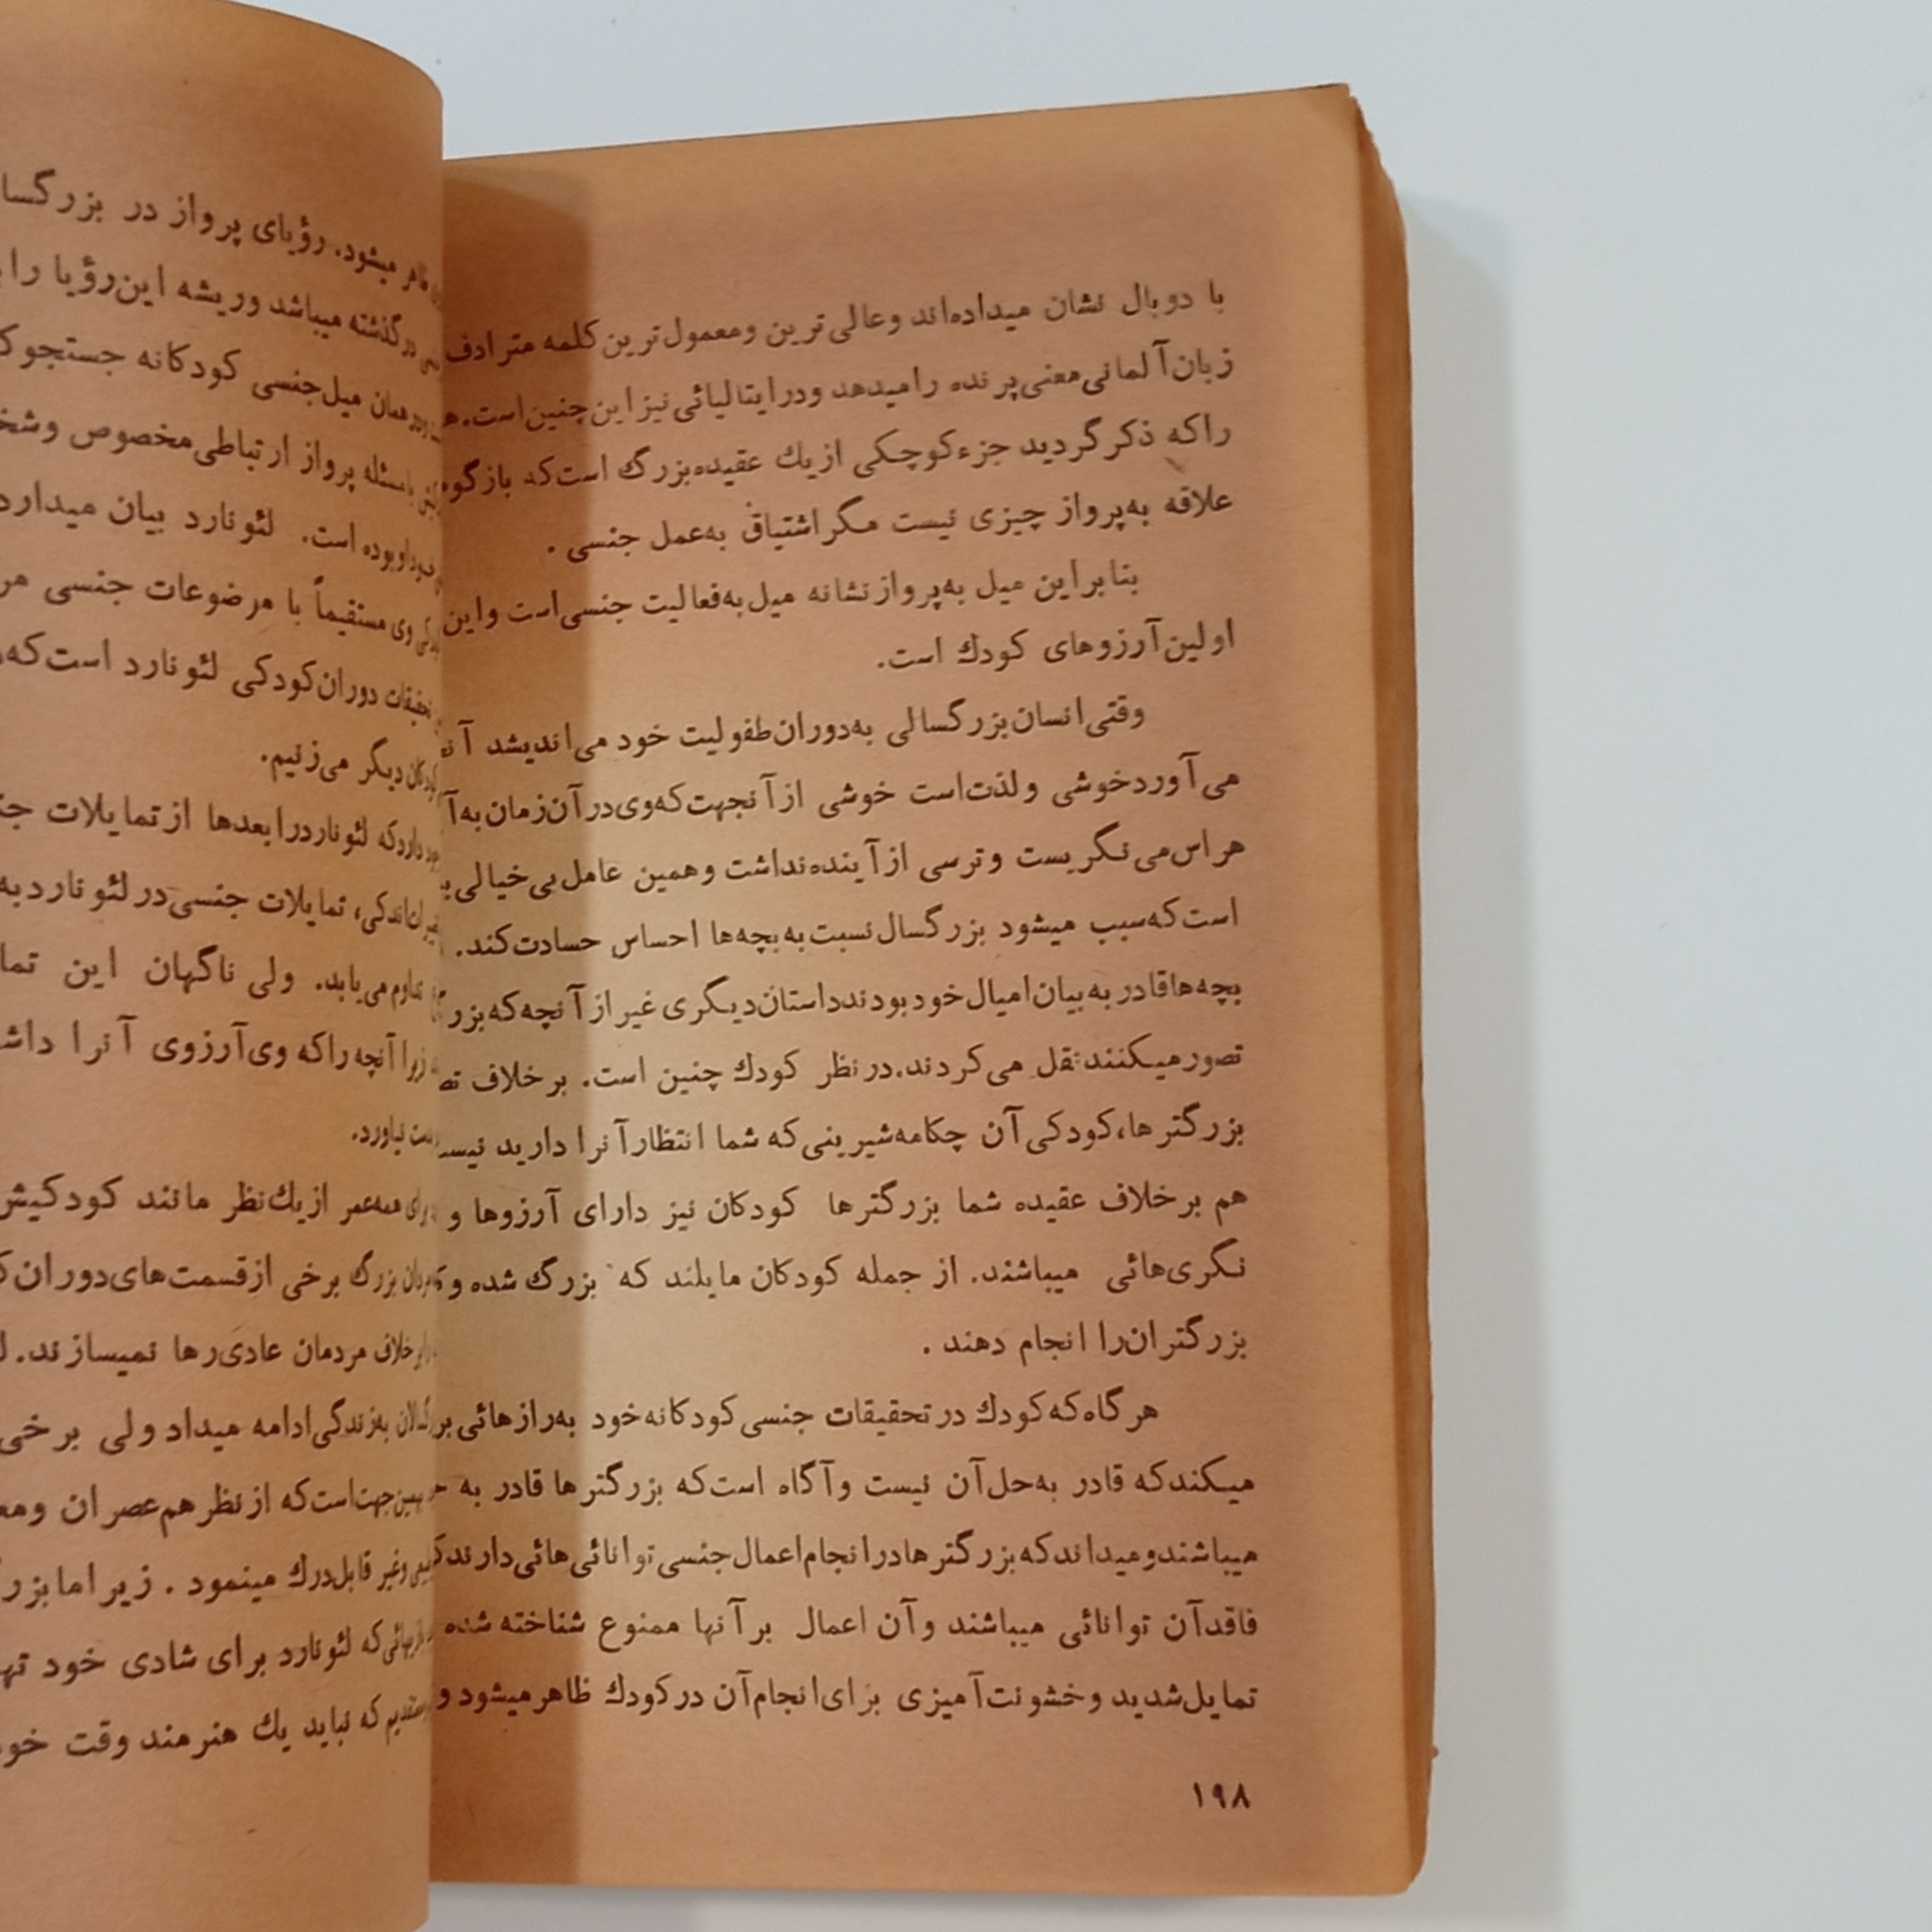 با دو بال نشان میداده‌اند و عالی‌ترین و معمول‌ترین کلمه مترادف
زبان آلمانی معنی پرنده را میدهد و در ایتالیائی نیز این چنین است.
را که ذکر گردید جزء کوچکی از یك عقیده بزرگ است که بازگو
علاقه به پرواز چیزی نیست مگر اشتیاق به عمل جنسی .
بنابراین میل به پرواز نشانه میل به فعالیت جنسی است و این
اولین آرزوهای کودك است.
وقتی انسان بزرگسالی به دوران طفولیت خود می‌اندیشد
می‌آورد خوشی و لذت است خوشی از آنجهت که وی در آن زمان به
هراس می‌نگریست و ترسی از آینده نداشت و همین عامل بی‌خیالی
است که سبب میشود بزرگسال نسبت به بچه‌ها احساس حسادت کند.
بچه‌ها قادر به بیان امیال خود بودند داستان دیگری غیر از آنچه که بزر
تصور میکنند نقل می‌کردند. در نظر کودك چنین است. برخلاف
بزرگترها، کودکی آن چکامه شیرینی که شما انتظار آنرا دارید
هم برخلاف عقیده شما بزرگترها کودکان نیز دارای آرزوها و
نگری‌هائی میباشند. از جمله کودکان مایلند که بزرگ شده و
بزرگتران را انجام دهند .
هرگاه که کودك در تحقیقات جنسی کودکانه خود به رازهائی بر
میکند که قادر به حل آن نیست و آگاه است که بزرگترها قادر به
میباشند و میداند که بزرگترها در انجام اعمال جنسی توانائی‌هائی دارند
فاقد آن توانائی میباشند و آن اعمال بر آنها ممنوع شناخته شده
تمایل شدید و خشونت‌آمیزی برای انجام آن در کودك ظاهر میشود و
۱۹۸
میشود. رؤیای پرواز در بزرگسا
در گذشته میباشد و ریشه این رؤیا را
همان میل جنسی کودکانه جستجو
مسئله پرواز ارتباطی مخصوص و
بوده است. لئونارد بیان میدارد
وی مستقیماً با مرضوعات جنسی
تحقیقات دوران کودکی لئونارد است که
دیگر می‌زنیم.
دارد که لئونارد را بعدها از تمایلات
تمایلات جنسی در لئونارد به
تداوم می‌یابد. ولی ناگهان این تما
زیرا آنچه را که وی آرزوی آنرا
نیاورد.
همه عمر از یك نظر مانند کودکیش
بزرگ برخی از قسمت‌های دوران
برخلاف مردمان عادی رها نمیسازند.
به زندگی ادامه میداد ولی برخی
جهت است که از نظر هم‌عصران و
و غیر قابل درك مینمود . زیرا ما بزر
که لئونارد برای شادی خود
که نباید یك هنرمند وقت